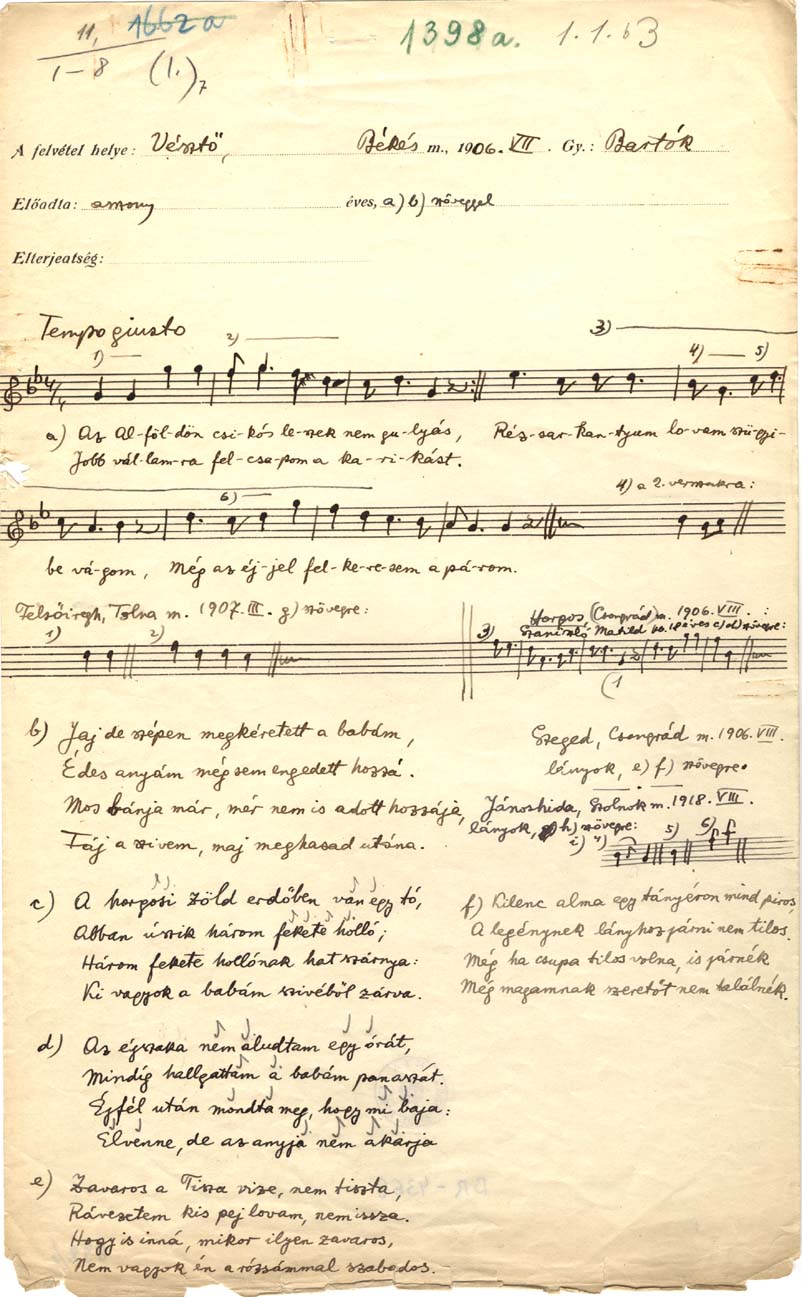 11, 1662a 1398a. 1.1.63
1–8 (1.)7
A felvétel helye: Vésztő, Békés m., 1906. VII. Gy.: Bartók
Előadta: asszony éves, a) b) szöveggel
Elterjedtség:
Tempo giusto 3)
1) 2) 4) 5)
a) Az Al-föl-dön csi-kós le-szek nem gu-lyás, Réz-sar-kan-tyum lo-vam szü-gyi-
Jobb vál-lam-ra fel-csa-pom a ka-ri-kást.
6) 4) a 2. versszakra:
be vá-gom, Még az éj-jel fel-ke-re-sem a pá-rom.
Felsőiregh, Tolna m. 1907. III. g) szövegre: Horgos, (Csongrád) m. 1906. VIII. :
Szaniszló Matild 18 éves c) d) szövegre:
1) 2) 3)
b) Jaj de szépen megkéretett a babám,
Édes anyám még sem engedett hozzá.
Mos bánja már, mér nem is adott hozzája,
Fáj a szivem, maj meghasad utána.
Szeged, Csongrád m. 1906. VIII.
lányok, e) f) szövegre.
Jánoshida, Szolnok m. 1918. VIII.
lányok, h) szövegre:
i) 4) 5) 6)
c) A horgosi zöld erdőben van egy tó,
Abban úszik három fekete holló;
Három fekete hollónak hat szárnya:
Ki vagyok a babám szivéből zárva.
f) Kilenc alma egy tányéron mind piros,
A legénynek lányhoz járni nem tilos.
Még ha csupa tilos volna, is járnék
Még magamnak szeretőt nem találnék.
d) Az éjszaka nem aludtam egy órát,
Mindíg hallgattam a babám panaszát.
Éjfél után mondta meg, hogy mi baja:
Elvenne, de az anyja nem akarja
e) Zavaros a Tisza vize, nem tiszta,
Rávezetem kis pej lovam, nem issza.
Hogy is inná, mikor ilyen zavaros,
Nem vagyok én a rózsámmal szabados.